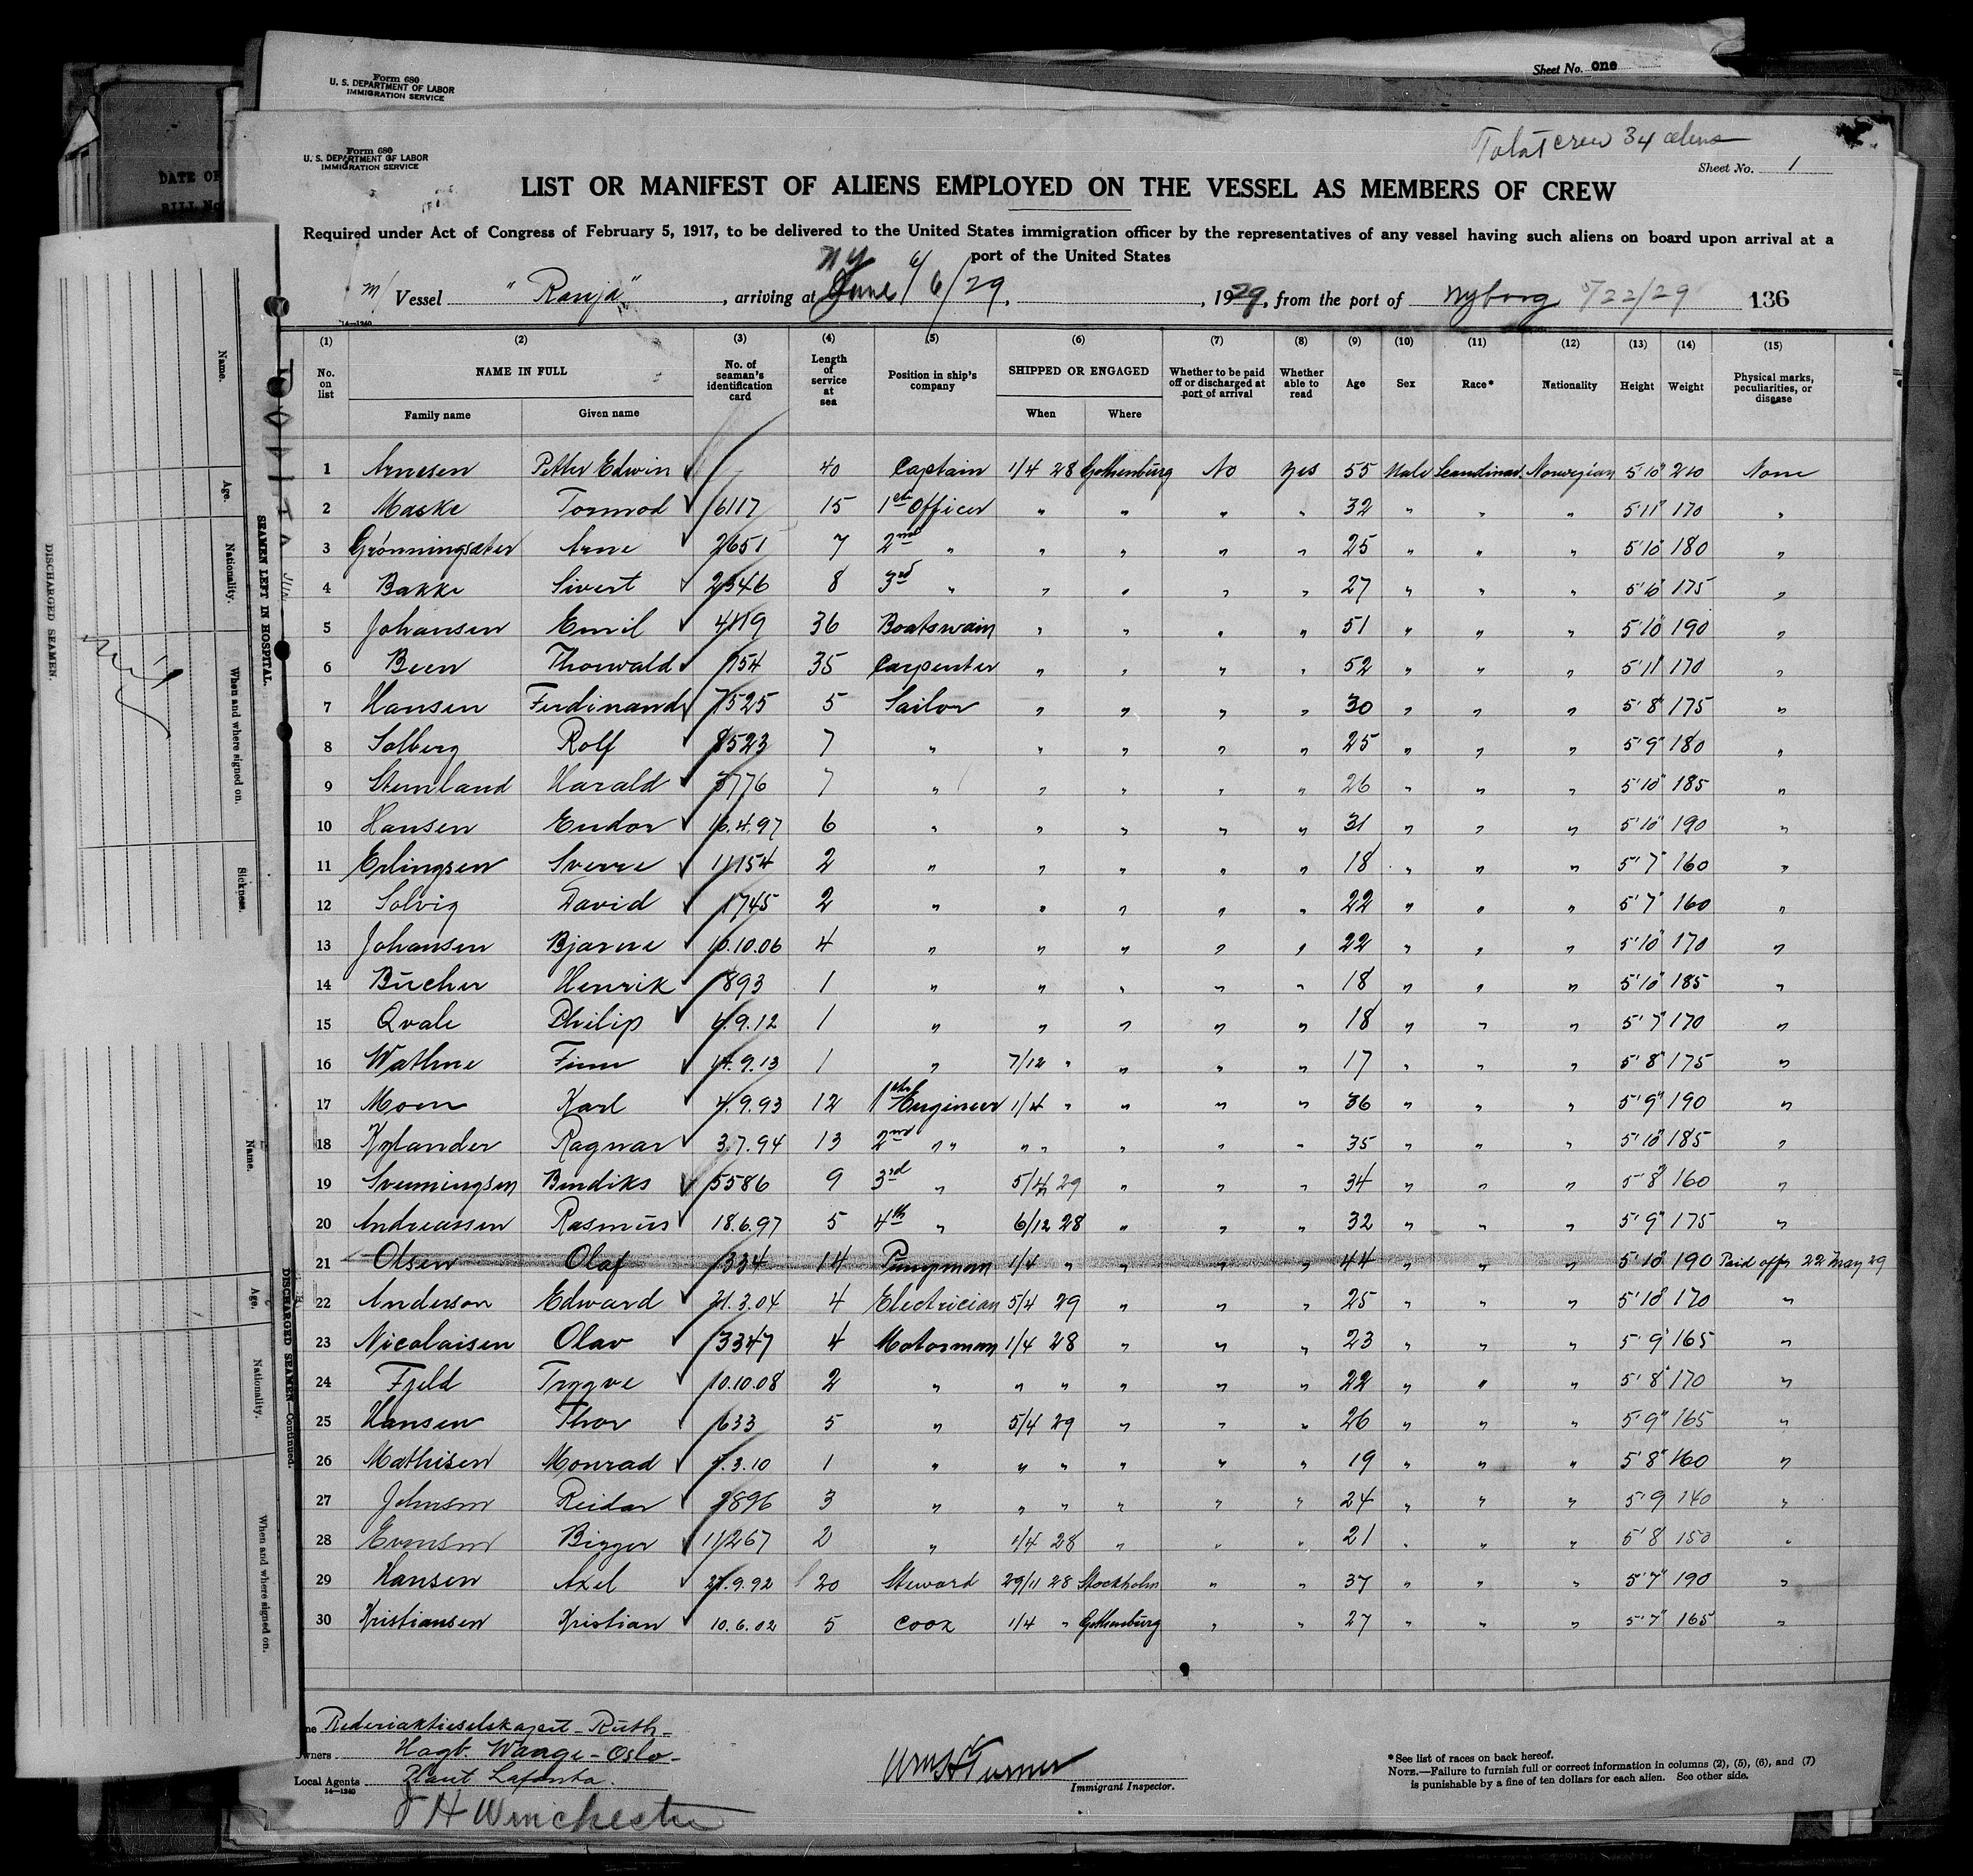 Form 680
U. S. DEPARTMENT OF LABOR
IMMIGRATION SERVICE
Sheet No. one
DATE OF
BILL No
Form 680
U. S. DEPARTMENT OF LABOR
IMMIGRATION SERVICE
Total crew 34 aliens
Sheet No. 1
LIST OR MANIFEST OF ALIENS EMPLOYED ON THE VESSEL AS MEMBERS OF CREW
Required under Act of Congress of February 5, 1917, to be delivered to the United States immigration officer by the representatives of any vessel having such aliens on board upon arrival at a
port of the United States
m/ Vessel "Ranja", arriving at NY June 6/29, 1929, from the port of Nyborg 5/22/29 136
14—1240
(1) (2) (3) (4) (5) (6) (7) (8) (9) (10) (11) (12) (13) (14) (15)
No. on list
NAME IN FULL
Family name
Given name
No. of seaman's identification card
Length of service at sea
Position in ship's company
SHIPPED OR ENGAGED
When
Where
Whether to be paid off or discharged at port of arrival
Whether able to read
Age
Sex
Race*
Nationality
Height
Weight
Physical marks, peculiarities, or disease
1 Arnesen Petter Edwin 40 Captain 1/4 28 Gothenburg No yes 55 Male Scandinav. Norwegian 5'10" 210 None
2 Maske Tormod 6117 15 1st Officer " " " " 32 " " " 5'11" 170 "
3 Grønningsæter Arne 2651 7 2nd " " " " " 25 " " " 5'10" 180 "
4 Bakke Sivert 2346 8 3rd " " " " " 27 " " " 5'6" 175 "
5 Johansen Emil 4119 36 Boatswain " " " " 51 " " " 5'10" 190 "
6 Been Thorwald 754 35 Carpenter " " " " 52 " " " 5'11" 170 "
7 Hansen Ferdinand 7525 5 Sailor " " " " 30 " " " 5'8" 175 "
8 Solberg Rolf 8523 7 " " " " " 25 " " " 5'9" 180 "
9 Stemland Harald 3776 7 " " " " " 26 " " " 5'10" 185 "
10 Hansen Endor 16.4.97 6 " " " " " 31 " " " 5'10" 190 "
11 Erlingsen Sverre 11154 2 " " " " " 18 " " " 5'7" 160 "
12 Solvig David 1745 2 " " " " " 22 " " " 5'7" 160 "
13 Johansen Bjarne 10.10.06 4 " " " " " 22 " " " 5'10" 170 "
14 Bücher Henrik 893 1 " " " " " 18 " " " 5'10" 185 "
15 Qvale Philip 4.9.12 1 " " " " " 18 " " " 5'7" 170 "
16 Wathne Finn 14.9.13 1 " 7/12 " " " " 17 " " " 5'8" 175 "
17 Moen Karl 4.9.93 12 1st Engineer 1/4 " " " " 36 " " " 5'9" 190 "
18 Kylander Ragnar 3.7.94 13 2nd " " " " " " " 35 " " " 5'10" 185 "
19 Svenningsen Bendiks 5586 9 3rd " 5/4 29 " " " 34 " " " 5'8" 160 "
20 Andreassen Rasmus 18.6.97 5 4th " 6/12 28 " " " 32 " " " 5'9" 175 "
21 Olsen Olaf 334 14 Pumpman 1/4 " " " " 44 " " " 5'10" 190 Paid off 22 May 29
22 Anderson Edward 21.3.04 4 Electrician 5/4 29 " " " 25 " " " 5'10" 170 "
23 Nicolaisen Olav 3347 4 Motorman 1/4 28 " " " 23 " " " 5'9" 165 "
24 Fjeld Trygve 10.10.08 2 " " " " " " 22 " " " 5'8" 170 "
25 Hansen Thor 633 5 " 5/4 29 " " " 26 " " " 5'9" 165 "
26 Mathisen Monrad 7.3.10 1 " " " " " " 19 " " " 5'8" 160 "
27 Johnson Reidar 2896 3 " " " " " " 24 " " " 5'9 140 "
28 Evensen Birger 11267 2 " 1/4 28 " " " 21 " " " 5'8 150 "
29 Hansen Axel 27.9.92 20 Steward 29/11 28 Stockholm " " 37 " " " 5'7" 190 "
30 Kristiansen Kristian 10.6.02 5 Cook 1/4 " Gothenburg " " 27 " " " 5'7" 165 "
Rederiaktieselskapet Ruth
Owners Hagb. Waage - Oslo
Local Agents
14—1240
J H Winchester
Wm H Turner
Immigrant Inspector.
*See list of races on back hereof.
NOTE.—Failure to furnish full or correct information in columns (2), (5), (6), and (7)
is punishable by a fine of ten dollars for each alien. See other side.
DISCHARGED SEAMEN.
SEAMEN LEFT IN HOSPITAL.
Name.
Age.
Nationality.
When and where signed on.
Sickness.
DISCHARGED SEAMEN—Continued.
Name.
Age.
Nationality.
When and where signed on.